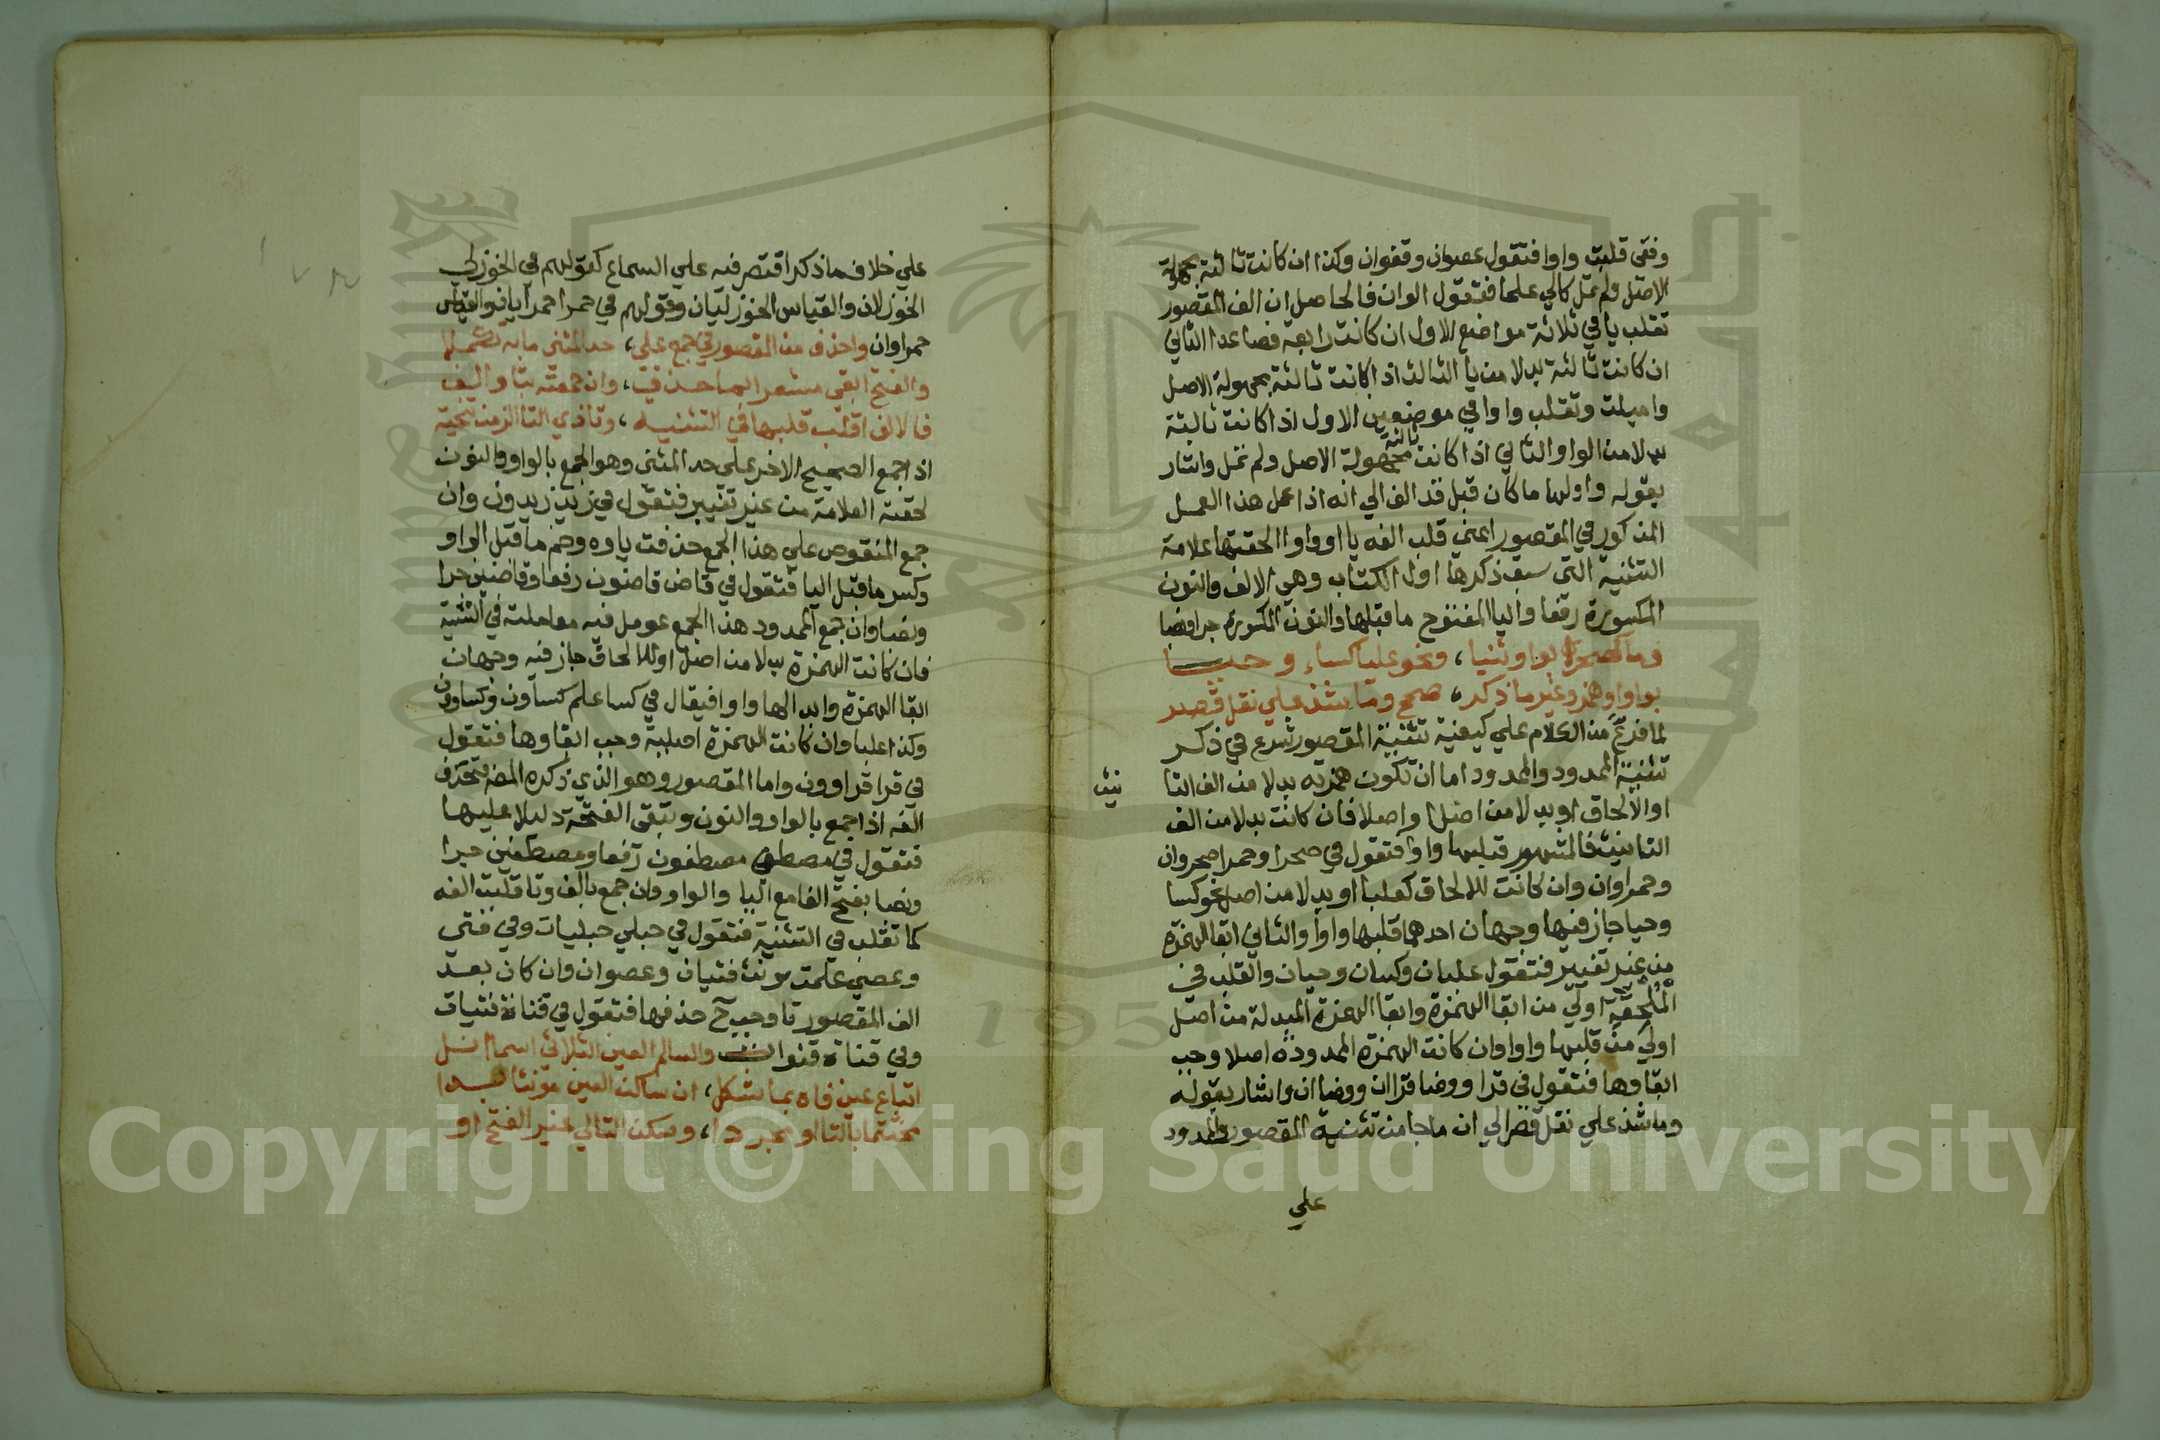 وقفي قلبت واوا فتقول عصوان وقفوان وكذا ان كانت ثالثة مجهولة
الاصل ولم تمل كالي علما فتقول الوان فالحاصل ان الف المقصور
تقلب يا في ثلاثة مواضع الاول ان كانت رابعة فصاعدا الثاني
ان كانت ثالثة بدلا من يا الثالث اذا كانت ثالثة مجهولة الاصل
واميلت وتقلب واوا في موضعين الاول اذا كانت ثالثة
بدلا من الواو الثاني اذا كانت ثالثة مجهولة الاصل ولم تمل واشار
بقوله واولها ما كان قبل قد الف الي انه اذا عمل هذا العمل
المذكور في المقصور اعني قلب الفه يا او واوا الحقتها علامة
التثنية التي سبق ذكرها اول الكتاب وهي الالف والنون
المكسورة رفعا واليا المفتوح ما قبلها والنون المكسورة جرا ونصبا
وما كصحرا بواو ثنيا، ونحو عليا كساء وحيا
بواو او همز وغير ما ذكر، صحح وما شذ علي نقل قصر
لما فرغ من الكلام علي كيفية تثنية المقصور شرع في ذكر
تثنية الممدود والممدود اما ان تكون همزته بدلا من الف التا
نيث
او الالحاق او بدلا من اصل او اصلا فان كانت بدلا من الف
التانيث فالمشهور قلبها واوا فتقول في صحرا وحمرا صحروان
وحمراوان وان كانت للالحاق كعلبا او بدلا من اصل نحو كسا
وحيا جاز فيها وجهان احدهما قلبها واوا والثاني ابقا الهمزة
من غير تغيير فتقول علبان وكسان وحيان والقلب في
الملحقة اولي من ابقا الهمزة وابقا الهمزة المبدلة من اصل
اولي من قلبها واوا وان كانت الهمزة الممدودة اصلا وجب
ابقاوها فتقول في قرا ووضا قراان ووضاان واشار بقوله
وما شذ علي نقل قصر الي ان ما جا من تثنية المقصور والممدود
علي
علي خلاف ما ذكر اقتصر فيه علي السماع كقولهم في الخوزلي
الخوزلان والقياس الخوزليان وقولهم في حمرا حمرايان والقياس
حمراوان واحذف من المقصور في جمع علي، حد المثني ما به تكملا
والفتح ابقي مشعرا بما حذف، وان جمعته بتا والف
فالالف اقلب قلبها في التثنيه، وتا ذي التا الزمن تنحية
اذا جمع الصحيح الاخر علي حد المثني وهو الجمع بالواو والنون
لحقته العلامة من غير تغيير فتقول في زيد زيدون وان
جمع المنقوص علي هذا الجمع حذفت ياوه وضم ما قبل الواو
وكسر ما قبل اليا فتقول في قاض قاضون رفعا وقاضين جرا
ونصبا وان جمع الممدود هذا الجمع عومل فيه معاملته في التثنية
فان كانت الهمزة بدلا من اصل او للالحاق جاز فيه وجهان
ابقا الهمزة وابدالها واوا فيقال في كسا علم كساون وكساوون
وكذا علبا وان كانت الهمزة اصلية وجب ابقاوها فتقول
في قرا قراوون واما المقصور وهو الذي ذكره المص فتحذف
الفه اذا جمع بالواو والنون وتبقي الفتحة دليلا عليها
فتقول في مصطفي مصطفون رفعا ومصطفين جرا
ونصبا بفتح الفا مع اليا والواو وان جمع بالف وتا قلبت الفه
كما تقلب في التثنية فتقول في حبلي حبليات وفي فتي
وعصي علمت مونث فتيان وعصوان وان كان بعد
الف المقصور تا وجب ح حذفها فتقول في فتاة فتيات
وفي قناة قنوات والسالم العين الثلاثي اسما انل
اتباع عين فاه بما شكل، ان ساكن العين مونثا بدا
مختتما بالتا او مجردا، وسكن التالي غير الفتح او